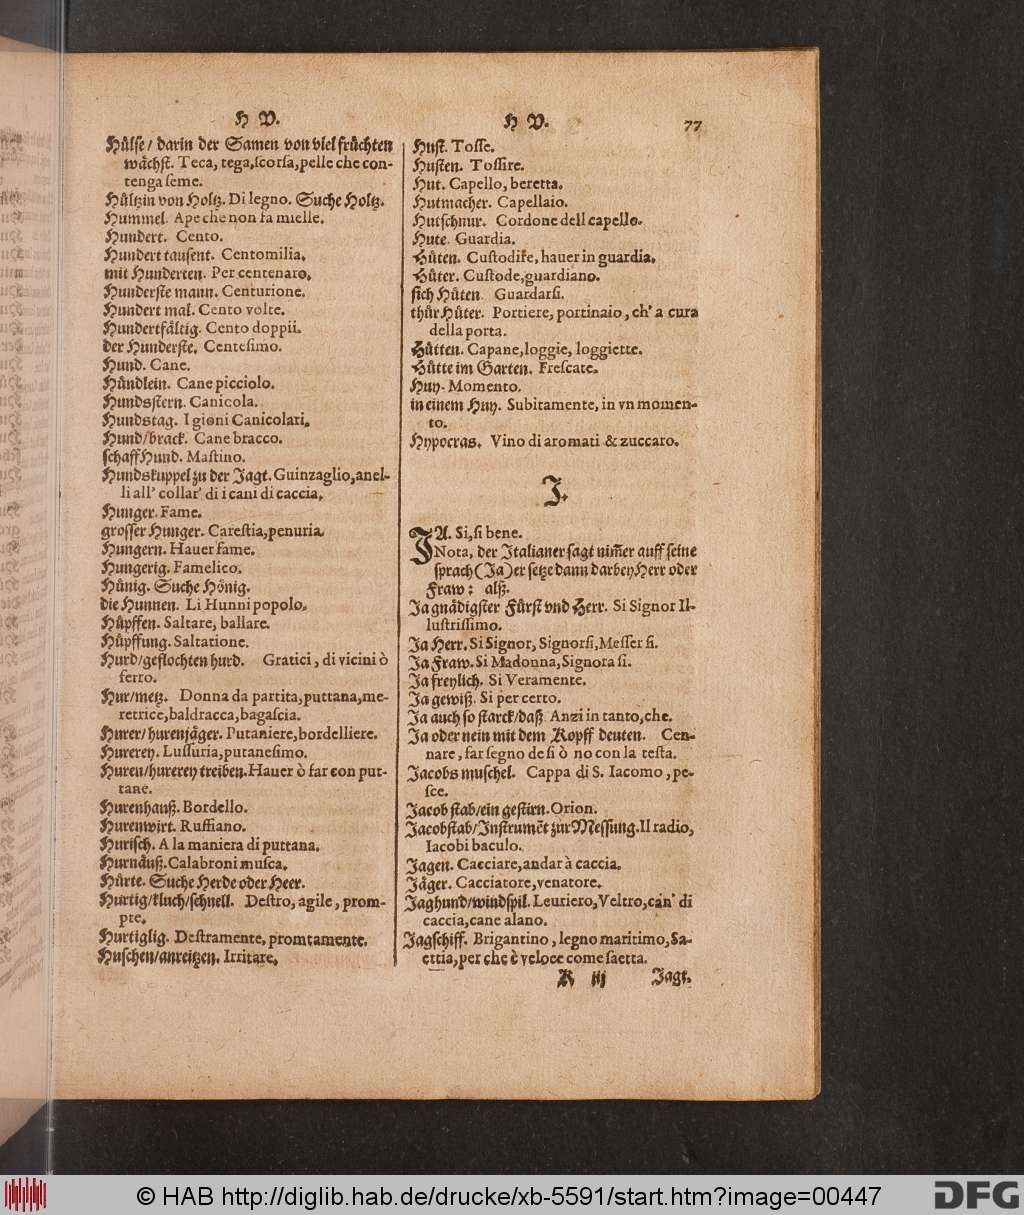 H V.
Hůlse/ darin der Samen von viel frůchten
wåchst. Teca, tega, scorsa, pelle che con-
tenga seme.
Hůltzin von Holtz. Di legno. Suche Holtz.
Hummel. Ape che non fa mielle.
Hundert. Cento.
Hundert tausent. Centomilia.
mit Hunderten. Per centenaro.
Hunderste mann. Centurione.
Hundert mal. Cento volte.
Hundertfåltig. Cento doppii.
der Hunderste. Centesimo.
Hund. Cane.
Hůndlein. Cane picciolo.
Hundsstern. Canicola.
Hundstag. I gioni Canicolari.
Hund/brack. Cane bracco.
schaff Hund. Mastino.
Hundskuppel zu der Jagt. Guinzaglio, anel-
li all' collar' di i cani di caccia.
Hunger. Fame.
grosser Hunger. Carestia, penuria.
Hungern. Hauer fame.
Hungerig. Famelico.
Hůnig. Suche Hönig.
die Hunnen. Li Hunni popolo.
Hůpffen. Saltare, ballare.
Hůpffung. Saltatione.
Hurd/geflochten hurd. Gratici, di vicini ò
ferro.
Hur/metz. Donna da partita, puttana, me-
retrice, baldracca, bagascia.
Hurer/ hurenjåger. Putaniere, bordelliere.
Hurerey. Lussuria, putanesimo.
Huren/hurerey treiben. Hauer ò far con put-
tane.
Hurenhauß. Bordello.
Hurenwirt. Ruffiano.
Hurisch. A la maniera di puttana.
Hurnåuß. Calabroni musca.
Hůrte. Suche Herde oder Heer.
Hurtig/kluch/schnell. Destro, agile, prom-
pte.
Hurtiglig. Destramente, promtamente.
Huschen/anreitzen. Irritare.
H V. 77
Hust. Tosse.
Husten. Tossire.
Hut. Capello, beretta.
Hutmacher. Capellaio.
Hutschnur. Cordone dell capello.
Hute. Guardia.
Hůten. Custodire, hauer in guardia.
Hůter. Custode, guardiano.
sich Hůten. Guardarsi.
thůr Hůter. Portiere, portinaio, ch' a cura
della porta.
Hůtten. Capane, loggie, loggiette.
Hůtte im Garten. Frescate.
Huy. Momento.
in einem Huy. Subitamente, in vn momen-
to.
Hypocras. Vino di aromati & zuccaro.
J.
JA. Si, si bene.
Nota, der Italianer sagt nim̃er auff seine
sprach (Ja) er setze dann darbey Herr oder
Fraw: alß.
Ja gnådigster Fůrst vnd Herr. Si Signor Il-
lustrissimo.
Ja Herr. Si Signor, Signorsi, Messer si.
Ja Fraw. Si Madonna, Signora si.
Ja freylich. Si Veramente.
Ja gewiß. Si per certo.
Ja auch so starck/daß. Anzi in tanto, che.
Ja oder nein mit dem Kopff deuten. Cen-
nare, far segno de si ò no con la testa.
Jacobs muschel. Cappa di S. Iacomo, pe-
sce.
Jacob stab/ein gestirn. Orion.
Jacobstab/Instrumẽt zur Messung. Il radio,
Iacobi baculo.
Jagen. Cacciare, andar à caccia.
Jåger. Cacciatore, venatore.
Jaghund/windspil. Leuriero, Veltro, can' di
caccia, cane alano.
Jagschiff. Brigantino, legno maritimo, Sa-
ettia, per che è veloce come saetta.
K iij Jagt.
© HAB http://diglib.hab.de/drucke/xb-5591/start.htm?image=00447
DFG